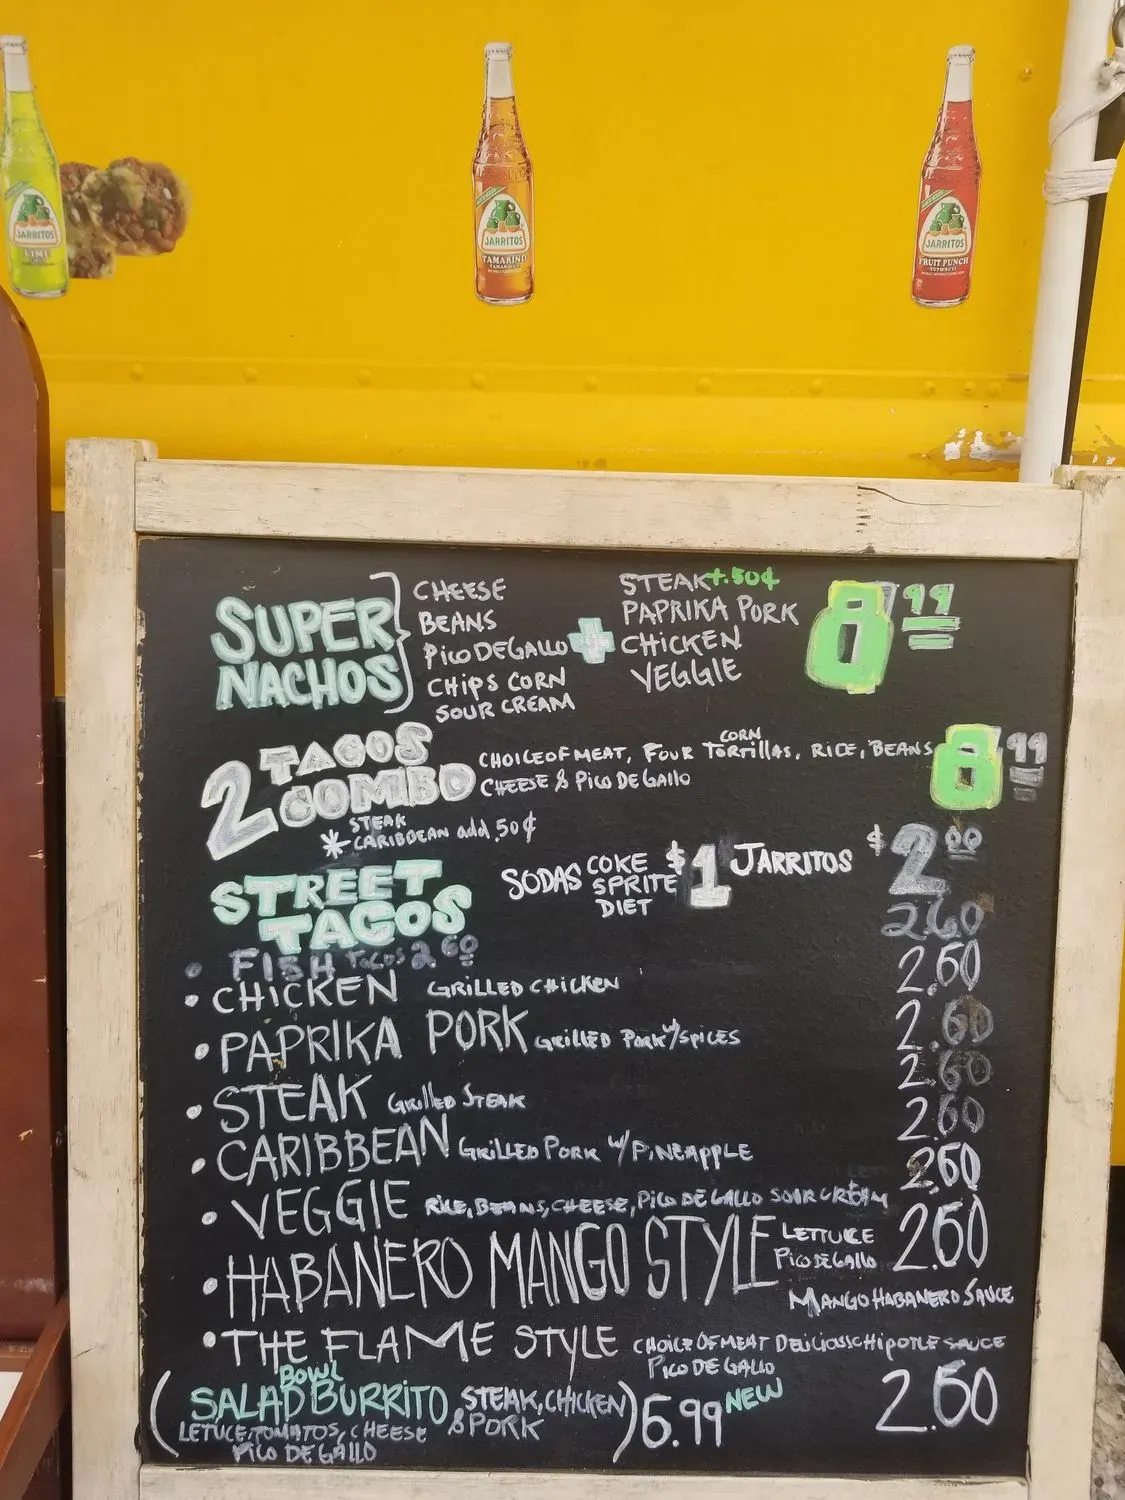 JARRITOS
LIME
JARRITOS
TAMARIND
JARRITOS
FRUIT PUNCH
SUPER NACHOS
CHEESE
BEANS
PICO DE GALLO
CHIPS CORN
SOUR CREAM
+
STEAK +.50¢
PAPRIKA PORK
CHICKEN
VEGGIE
8.99
2 TACOS COMBO
CHOICE OF MEAT, FOUR CORN TORTILLAS, RICE, BEANS
CHEESE & PICO DE GALLO
8.99
* STEAK
CARIBBEAN add .50¢
STREET TACOS
SODAS COKE SPRITE DIET $1
JARRITOS $2.00
2.60
• FISH TACOS 2.60
• CHICKEN GRILLED CHICKEN 2.60
• PAPRIKA PORK GRILLED PORK W/SPICES 2.60
2.60
• STEAK GRILLED STEAK 2.60
• CARIBBEAN GRILLED PORK W/PINEAPPLE 2.60
• VEGGIE RICE, BEANS, CHEESE, PICO DE GALLO SOUR CREAM 2.60
• HABANERO MANGO STYLE LETTUCE
PICO DE GALLO
MANGO HABANERO SAUCE
• THE FLAME STYLE CHOICE OF MEAT DELICIOUS CHIPOTLE SAUCE
PICO DE GALLO
2.60
(SALAD BOWL BURRITO, STEAK, CHICKEN & PORK) 6.99 NEW
LETUCE, TOMATOS, CHEESE
PICO DE GALLO